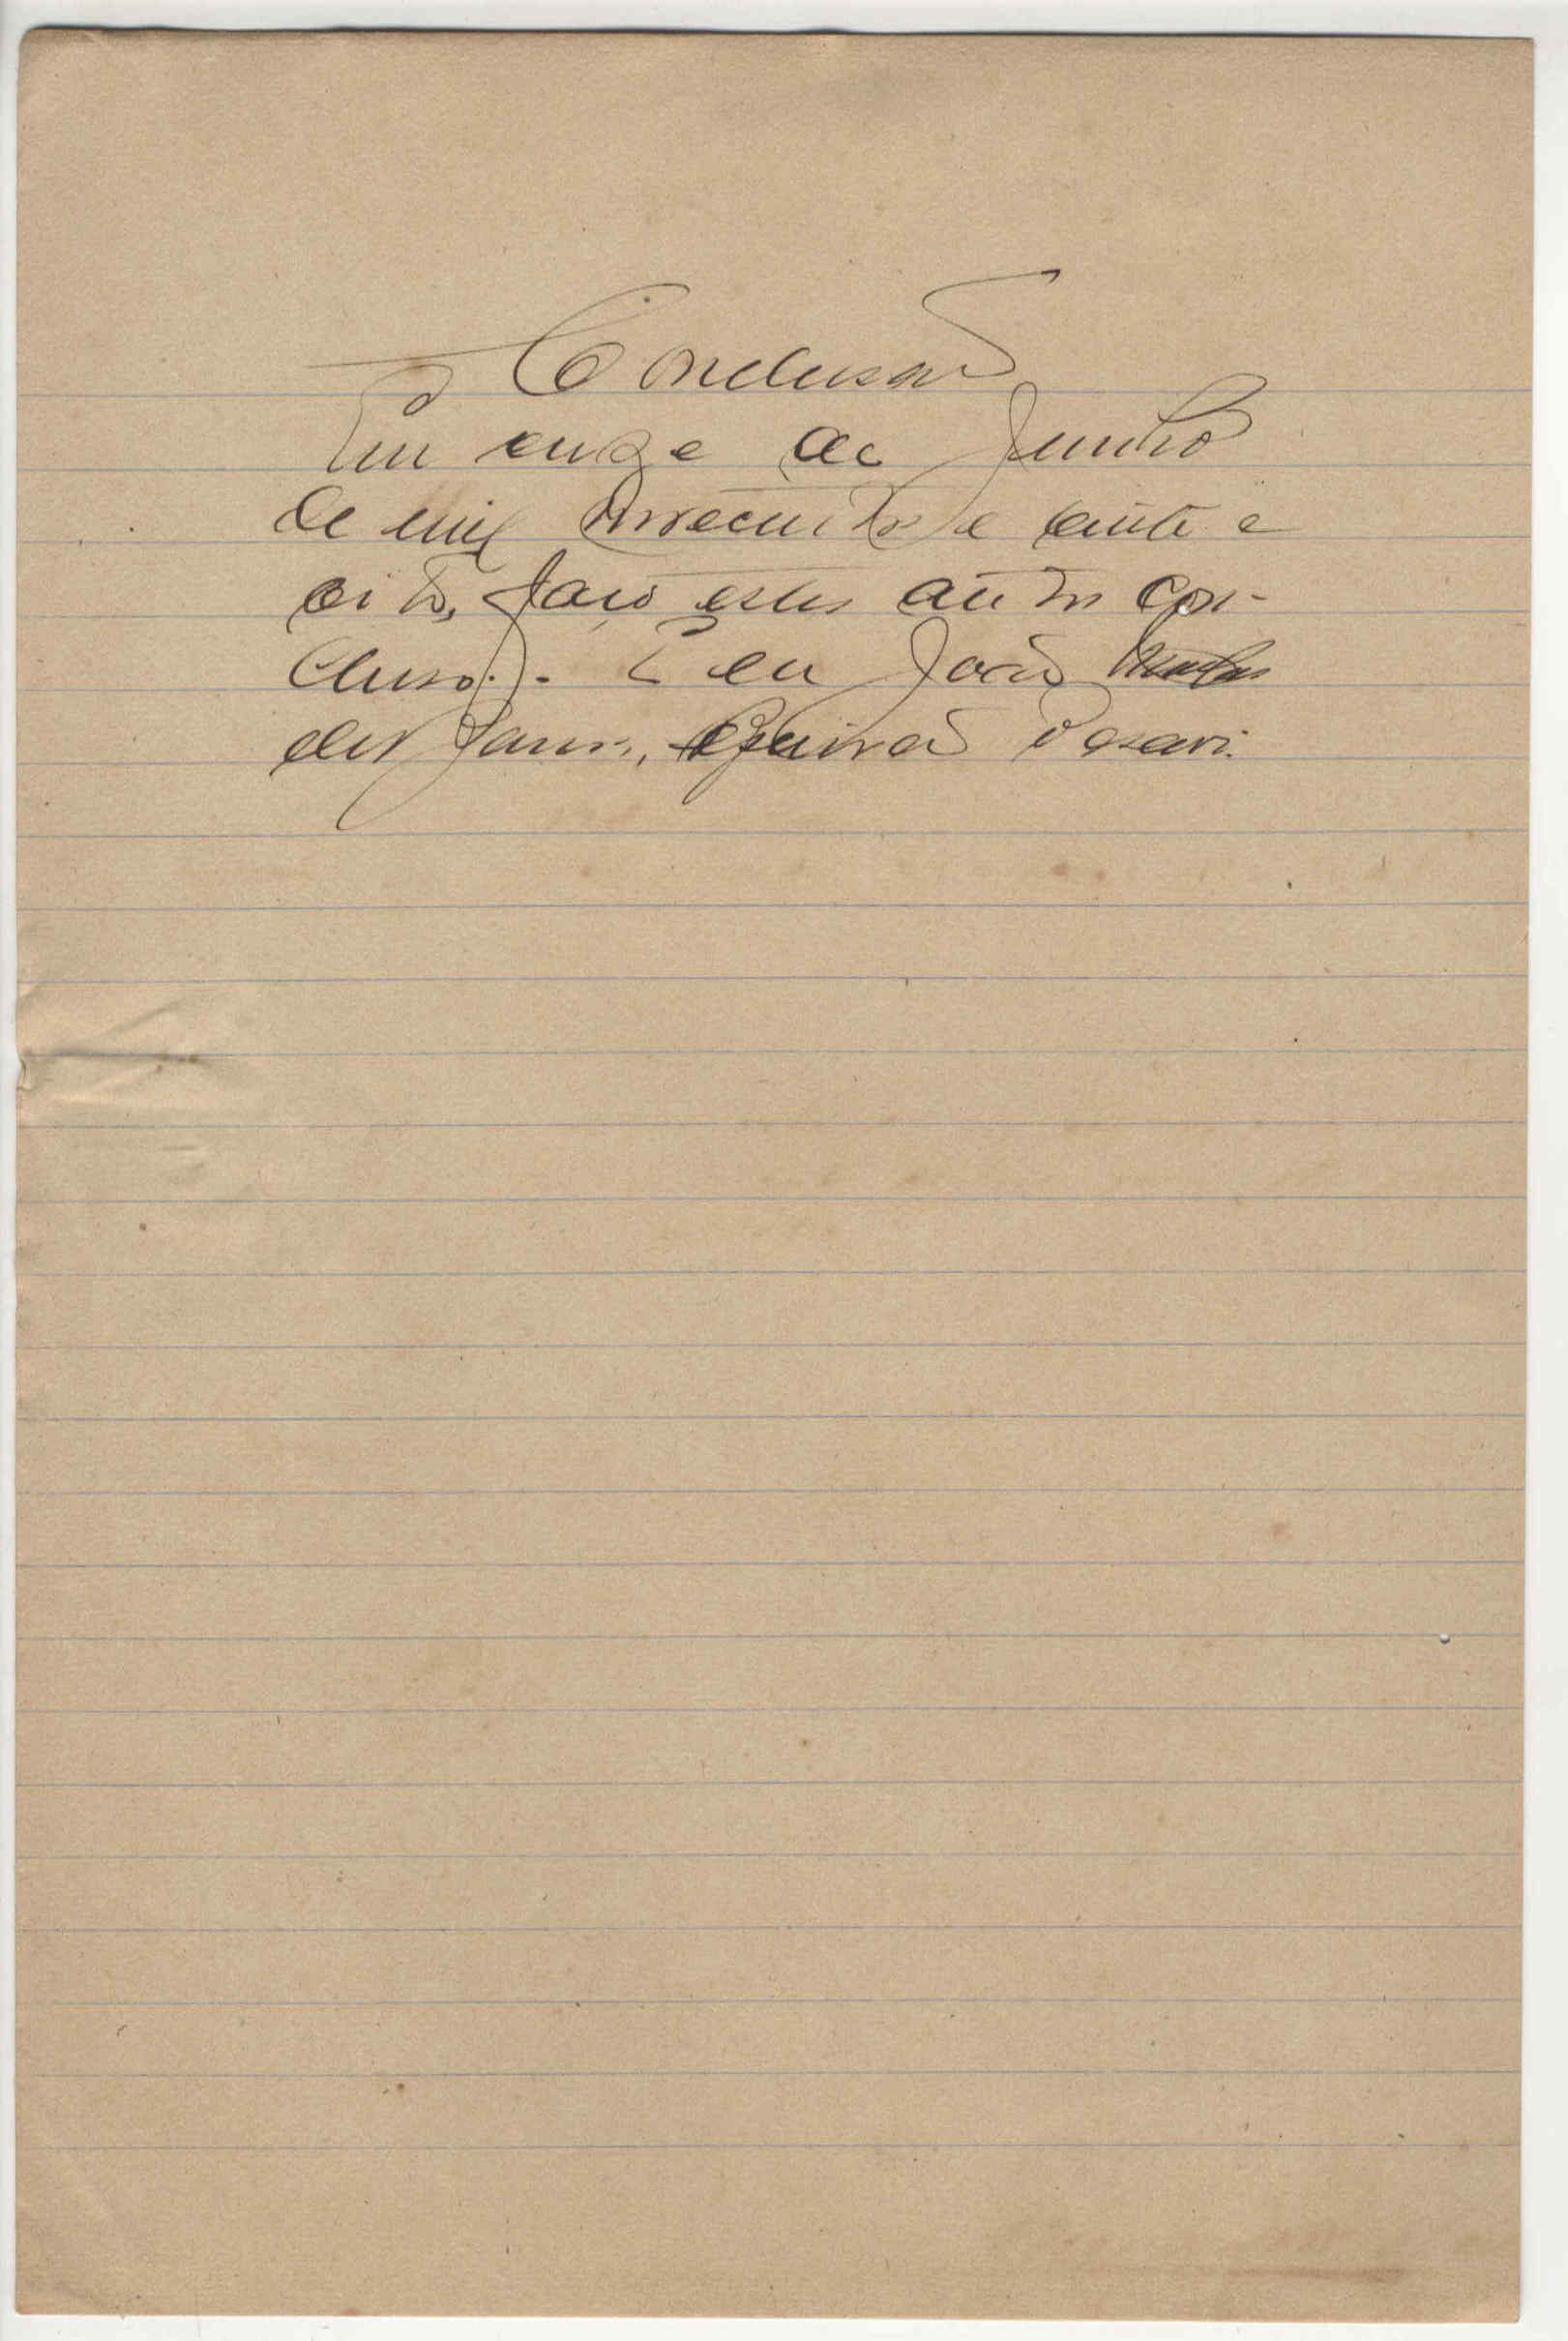 Conclusão
Em onze de Junho
de mil novecentos e vinte e
oito, faço estes autos con-
clusos. E eu João
dos Santos, Escrivão o escrevi.